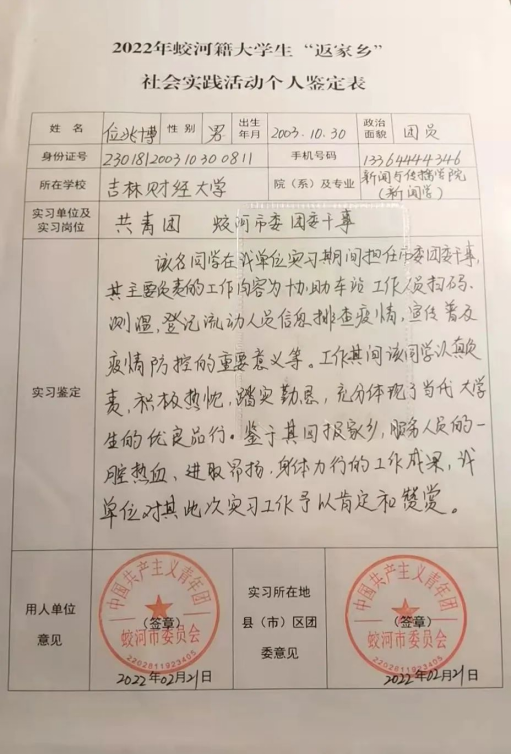 2022年蛟河籍大学生“返家乡”
社会实践活动个人鉴定表
姓 名 位兆博 性 别 男 出生年月 2003.10.30 政治面貌 团员
身份证号 230181200310300811 手机号码 13364444346
所在学校 吉林财经大学 院（系）及专业 新闻与传播学院（新闻学）
实习单位及实习岗位 共青团 蛟河市委 团委干事
实习鉴定
该名同学在我单位实习期间担任市委团委干事,
其主要负责的工作内容为协助车站工作人员扫码、
测温,登记流动人员信息排查疫情,宣传普及
疫情防控的重要意义等。工作其间该同学认真负
责,积极热忱,踏实勤恳,充分体现了当代大学
生的优良品行。鉴于其回报家乡,服务人员的一
腔热血、进取昂扬、身体力行的工作成果,我
单位对其此次实习工作予以肯定和赞赏。
用人单位
意见
中国共产主义青年团
(签章)
蛟河市委员会
2202811923405
2022年02月21日
实习所在地
县（市）区团
委意见
中国共产主义青年团
(签章)
蛟河市委员会
2202811923405
2022年02月21日